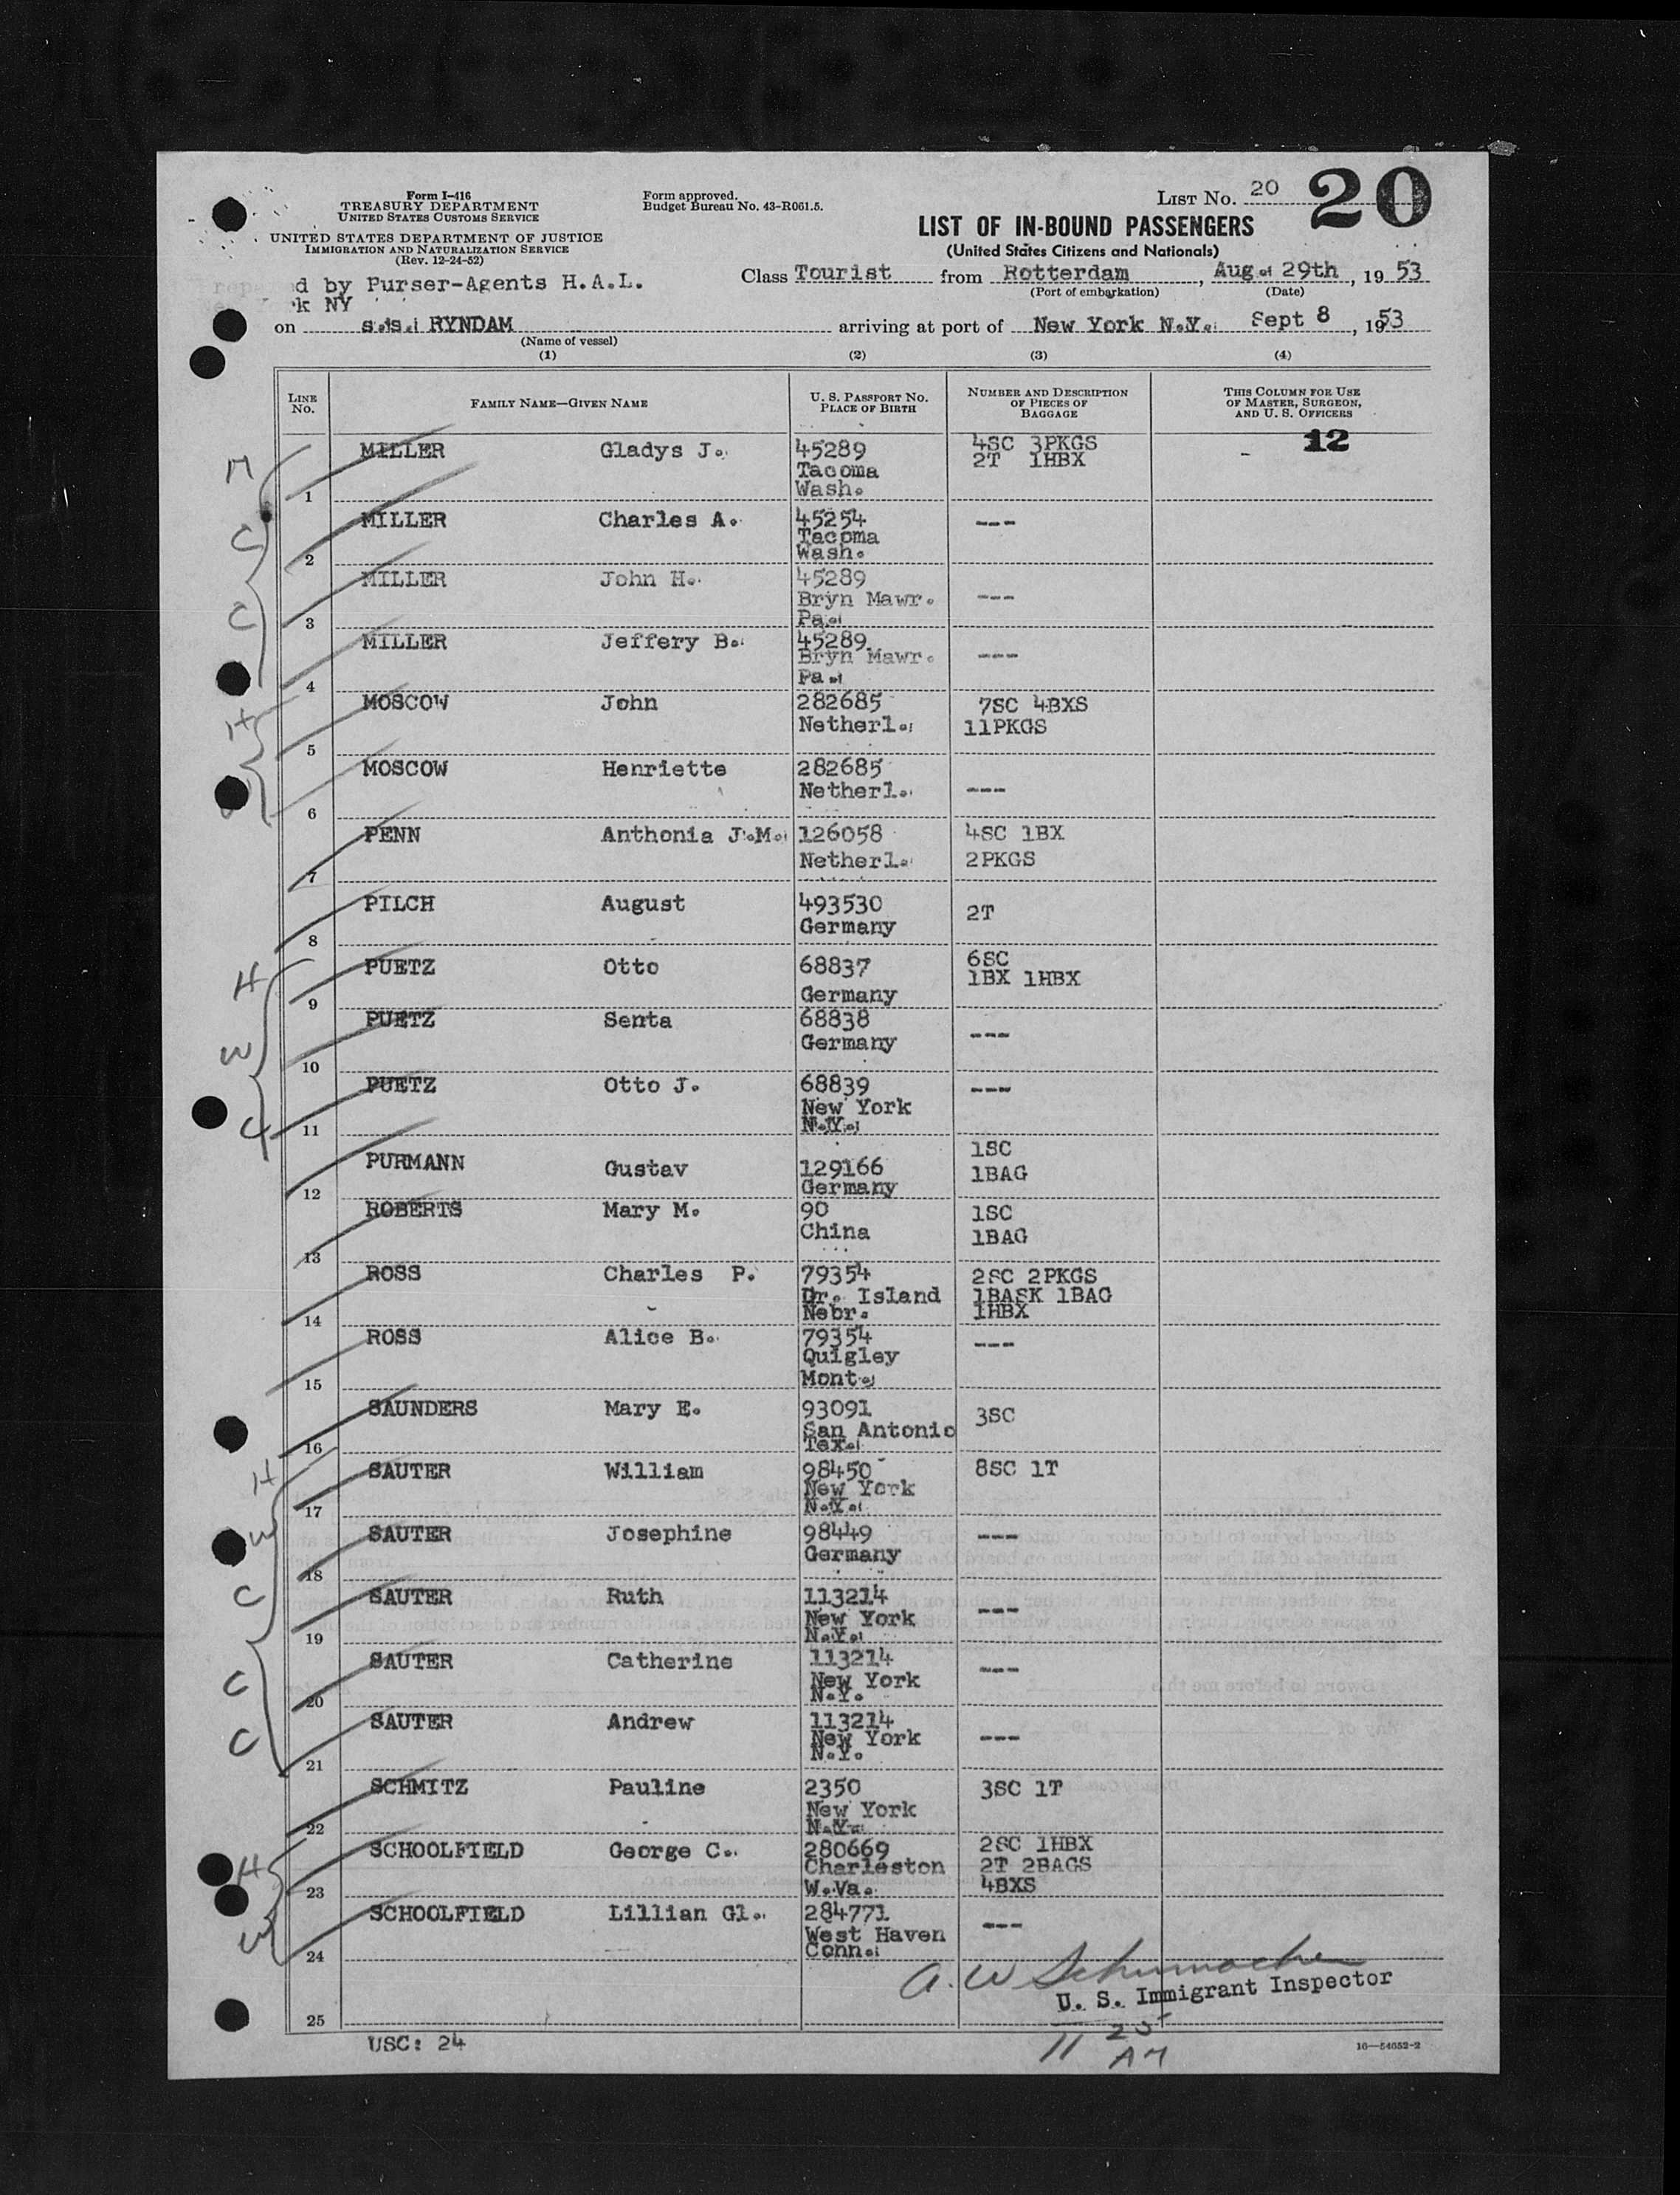 Form I-416
TREASURY DEPARTMENT
UNITED STATES CUSTOMS SERVICE
UNITED STATES DEPARTMENT OF JUSTICE
IMMIGRATION AND NATURALIZATION SERVICE
(Rev. 12-24-52)
Form approved.
Budget Bureau No. 43-R061.5.
LIST NO. 20 20
LIST OF IN-BOUND PASSENGERS
(United States Citizens and Nationals)
d by Purser-Agents H.A.L.
k NY
Class Tourist from Rotterdam, Aug. 29th, 1953
(Port of embarkation) (Date)
on s.s. RYNDAM arriving at port of New York N.Y. Sept 8, 1953
(Name of vessel)
(1) (2) (3) (4)
LINE NO. FAMILY NAME—GIVEN NAME U. S. PASSPORT NO. PLACE OF BIRTH NUMBER AND DESCRIPTION OF PIECES OF BAGGAGE THIS COLUMN FOR USE OF MASTER, SURGEON, AND U. S. OFFICERS
12
M MILLER Gladys J. 45289 4SC 3PKGS
Tacoma 2T 1HBX
1 Wash.
C MILLER Charles A. 45254 ---
Tacoma
2 Wash.
C MILLER John H. 45289 ---
Bryn Mawr.
3 Pa.
MILLER Jeffery B. 45289 ---
Bryn Mawr.
4 Pa.
H MOSCOW John 282685 7SC 4BXS
Netherl. 11PKGS
5
MOSCOW Henriette 282685
Netherl. ---
6
PENN Anthonia J.M. 126058 4SC 1BX
Netherl. 2PKGS
7
PILCH August 493530 2T
Germany
8
H PUETZ Otto 68837 6SC
1BX 1HBX
9 Germany
W PUETZ Senta 68838 ---
Germany
10
C PUETZ Otto J. 68839 ---
New York
11 N.Y.
PURMANN Gustav 129166 1SC
1BAG
12 Germany
ROBERTS Mary M. 90 1SC
China 1BAG
13
ROSS Charles P. 79354 2SC 2PKGS
Gr. Island 1BASK 1BAG
14 Nebr. 1HBX
ROSS Alice B. 79354 ---
Quigley
15 Mont.
SAUNDERS Mary E. 93091 3SC
San Antonio
16 Tex.
H SAUTER William 98450 8SC 1T
New York
17 N.Y.
W SAUTER Josephine 98449 ---
Germany
18
C SAUTER Ruth 113214 ---
New York
19 N.Y.
C SAUTER Catherine 113214 ---
New York
20 N.Y.
C SAUTER Andrew 113214 ---
New York
21 N.Y.
SCHMITZ Pauline 2350 3SC 1T
New York
22 N.Y.
H SCHOOLFIELD George C. 280669 2SC 1HBX
Charleston 2T 2BAGS
23 W.Va. 4BXS
W SCHOOLFIELD Lillian Gl. 284771 ---
West Haven
24 Conn.
A. W Schumacher
U. S. Immigrant Inspector
25
USC: 24
11 25 AM
16—54652-2